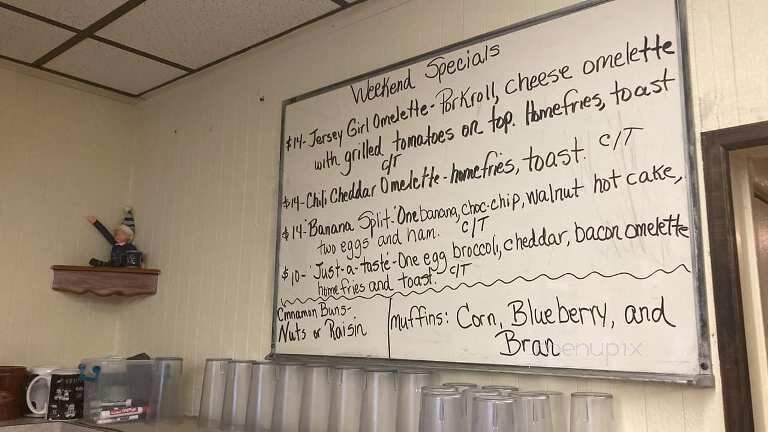 Weekend Specials
$14- Jersey Girl Omelette- Porkroll, cheese omelette
with grilled tomatoes on top. Homefries, toast
c/T
$14- Chili Cheddar Omelette- homefries, toast. c/T
$14- "Banana Split:" One banana, choc-chip, walnut hot cake,
two eggs and ham. c/T
$10- "Just-a-taste- One egg broccoli, cheddar, bacon omelette
homefries and toast. c/T
Cinnamon Buns-
Nuts or Raisin
Muffins: Corn, Blueberry, and
Bran
menupix